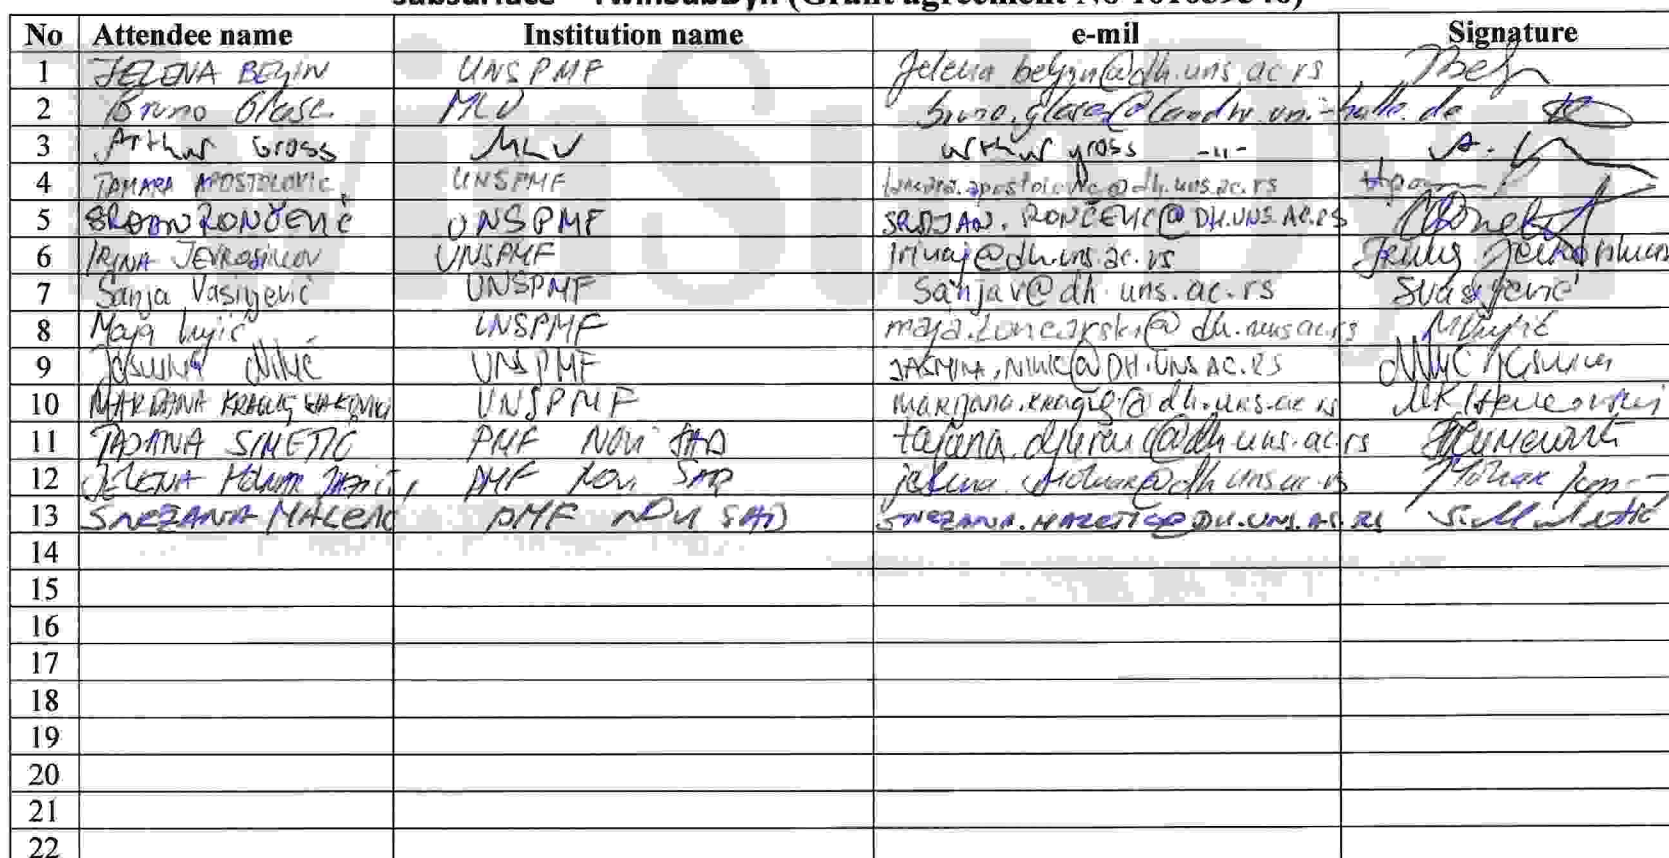 No Attendee name Institution name e-mil Signature
1 JELENA BELJIN UNSPMF jelena.beljin@dh.uns.ac.rs
2 Bruno Glaser MLU
3 Arthur Gross MLU arthur gross -"-
4 TAMARA APOSTOLOVIC UNSPMF tamara.apostolovic@dh.uns.ac.rs
5 SRĐAN RONČEVIĆ UNSPMF SRDJAN.RONČEVIC@DH.UNS.AC.RS
6 IRINA JEVROSIMOV UNSPMF irinaj@dh.uns.ac.rs
7 Sanja Vasiljević UNSPMF sanjav@dh.uns.ac.rs SVasiljević
8 Maja Vujić UNSPMF maja.loncarski@dh.uns.ac.rs MVujić
9 Jasmina Nikić UNSPMF JASMINA.NIKIC@DH.UNS.AC.RS Nikić Jasmina
10 MARIJANA KRAGULJ ISAKOVSKI UNSPMF marijana.kragulj@dh.uns.ac.rs
11 TAJANA SIMETIĆ PMF NOVI SAD tajana.djurkic@dh.uns.ac.rs
12 JELENA PMF Novi SAD jelena.molnar@dh.uns.ac.rs
13 SNEZANA MALETIC PMF NOVI SAD SNEZANA.MALETIC@DH.UNS.AC.RS
14
15
16
17
18
19
20
21
22